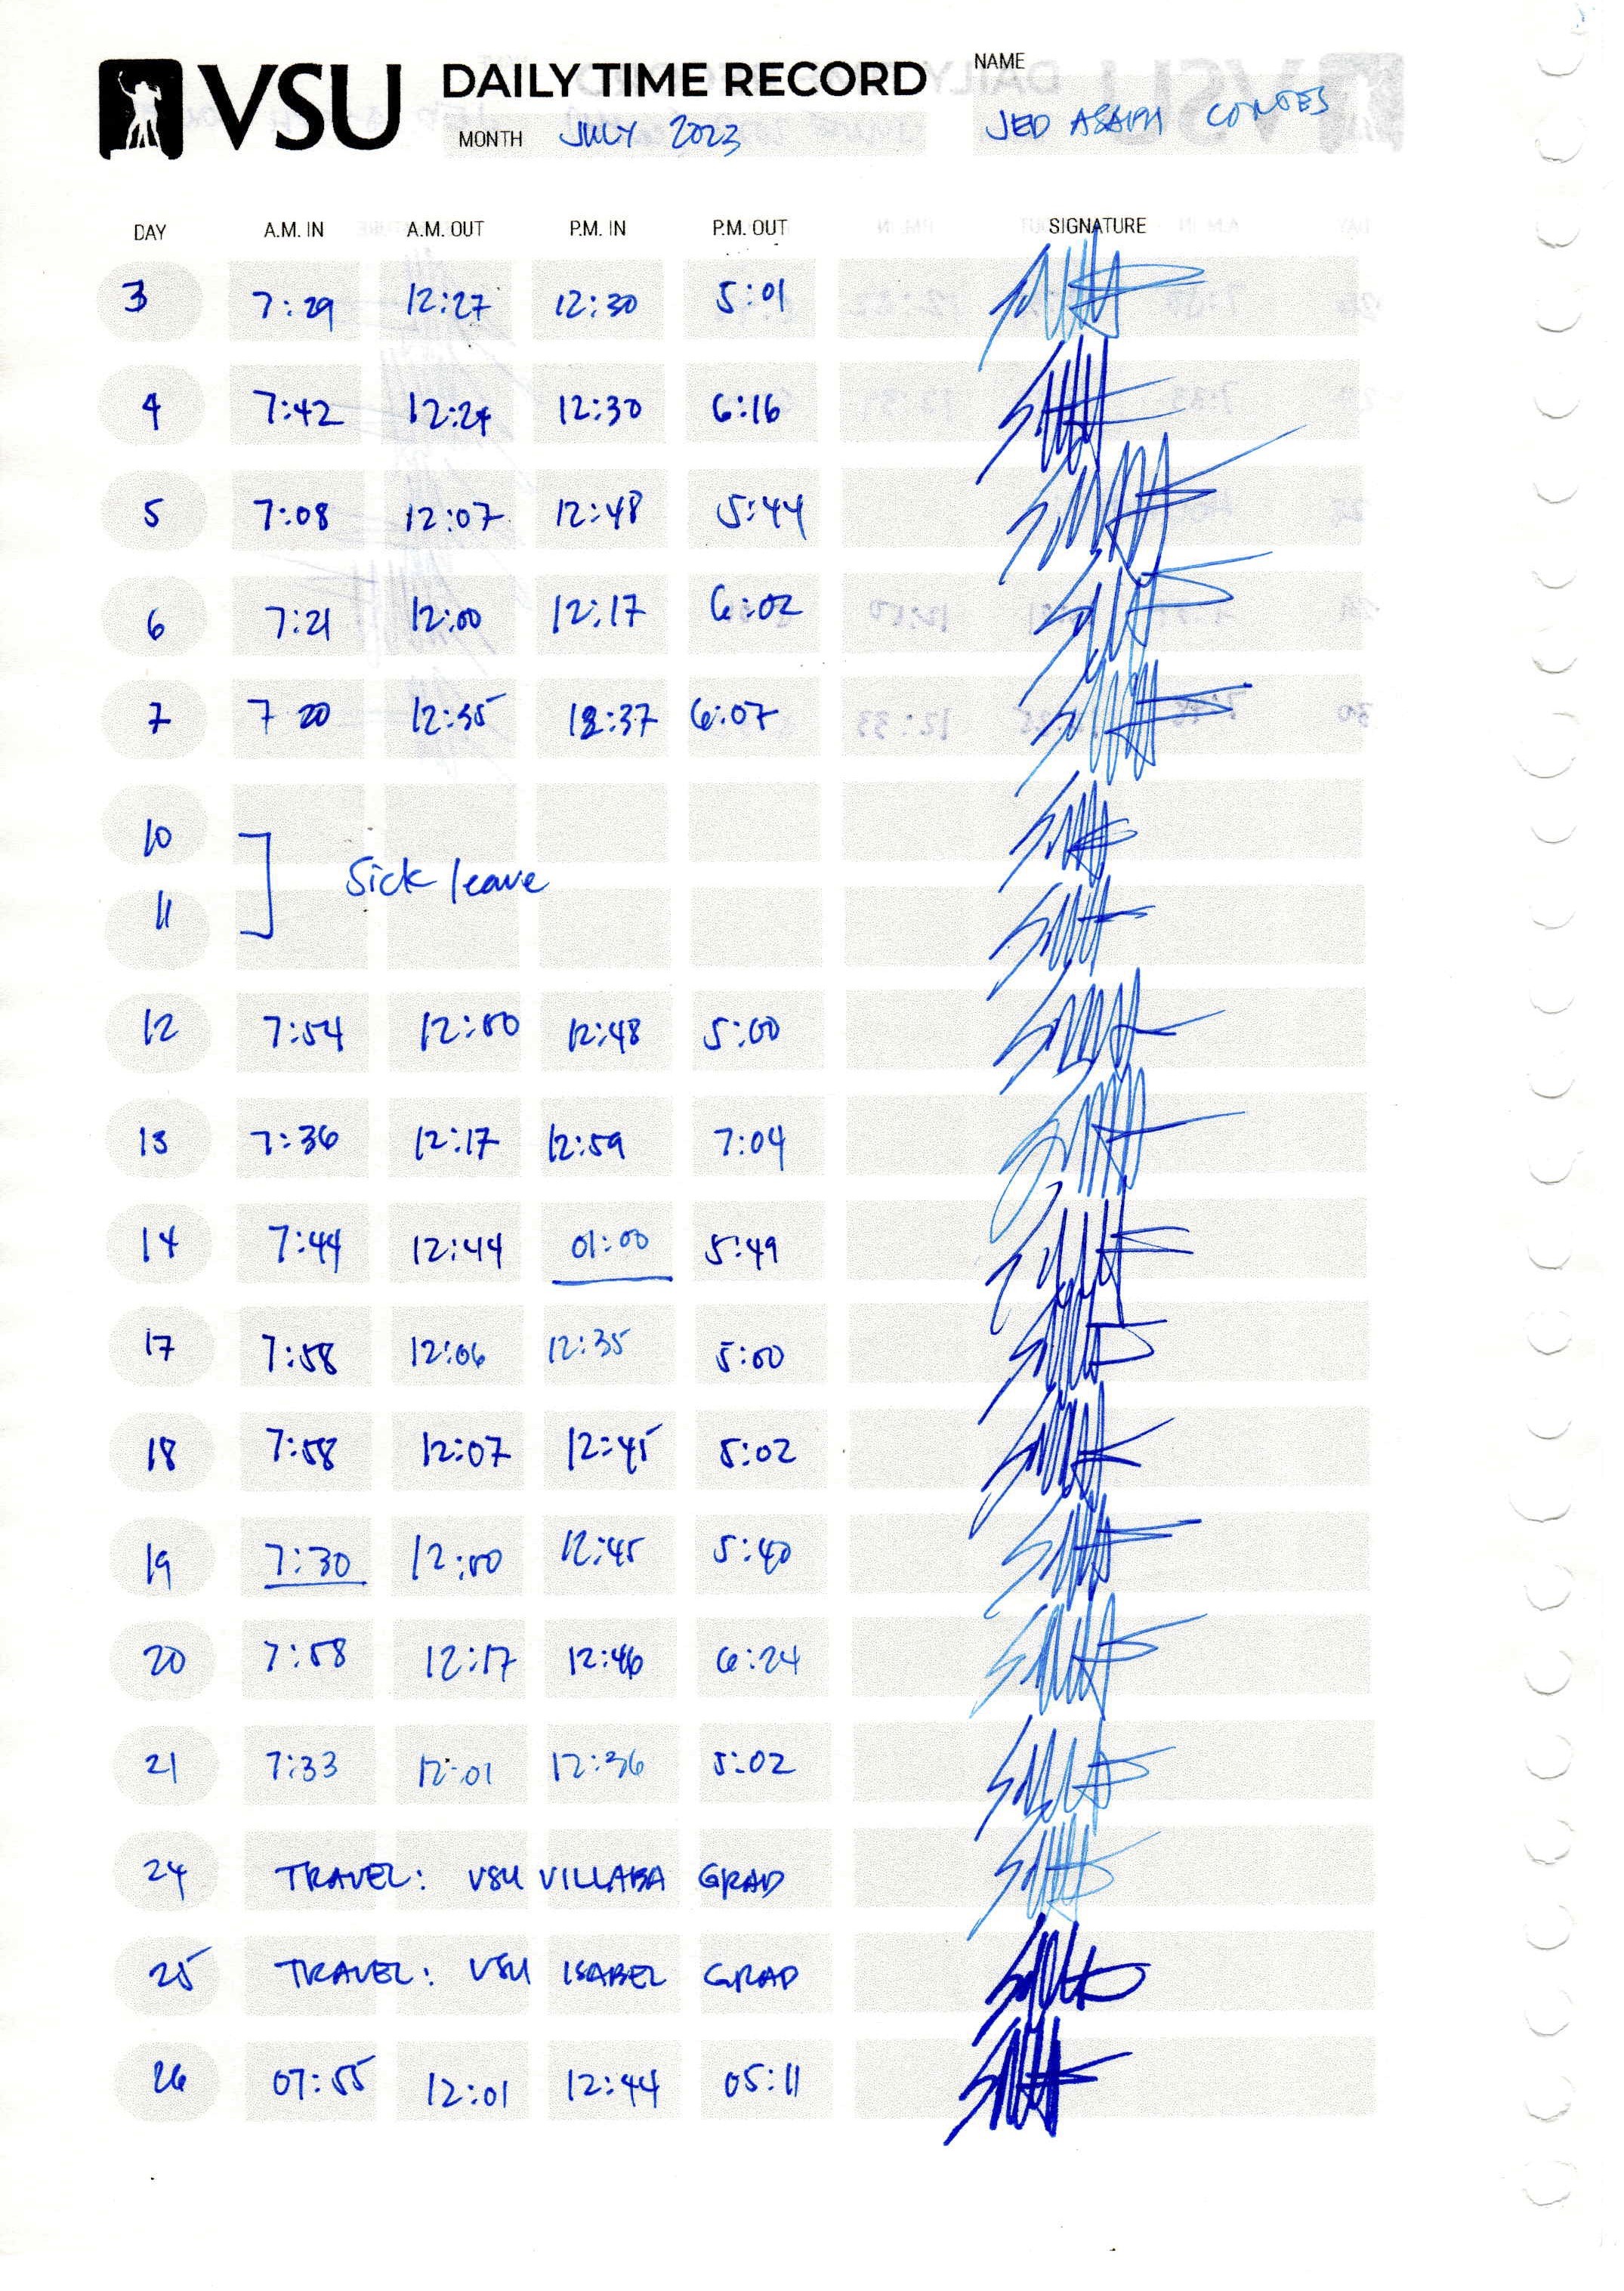 VSU DAILY TIME RECORD
NAME
MONTH JULY 2023
JED ASAPH CORTES
DAY A.M. IN A.M. OUT P.M. IN P.M. OUT SIGNATURE
3 7:29 12:27 12:30 5:01
4 7:42 12:24 12:30 6:16
5 7:08 12:07 12:48 5:44
6 7:21 12:00 12:17 6:02
7 7 20 12:35 12:37 6:07
10
Sick leave
11
12 7:54 12:00 12:48 5:00
13 7:36 12:17 12:59 7:04
14 7:44 12:44 01:00 5:49
17 7:58 12:06 12:35 5:00
18 7:58 12:07 12:45 5:02
19 7:30 12:00 12:45 5:40
20 7:58 12:17 12:46 6:24
21 7:33 12:01 12:36 5:02
24 TRAVEL: VSU VILLABA GRAD
25 TRAVEL: VSU ISABEL GRAD
26 07:55 12:01 12:44 05:11